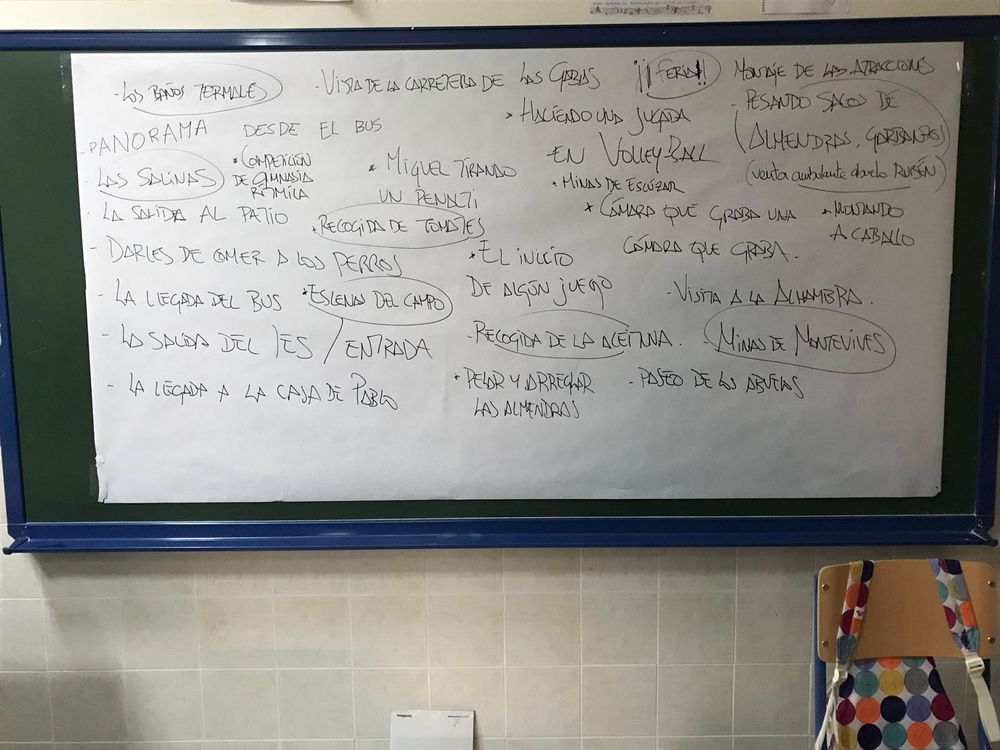 - LOS BAÑOS TERMALES
- VISTA DE LA CARRETERA DE LAS GABIAS
¡¡FERIA!!
MONTAJE DE LAS ATRACCIONES
- PANORAMA DESDE EL BUS
* HACIENDO UNA JUGADA
EN VOLLEY-BALL
- PESANDO SACOS DE
ALMENDRAS, GARBANZOS
(venta ambulante abuelo RUBÉN)
- LAS SALINAS
* COMPETICIÓN
DE GIMNASIA
RITMICA
* MIGUEL TIRANDO
UN PENALTI
* MINAS DE ESCÚZAR
- LA SALIDA AL PATIO
* RECOGIDA DE TOMATES
* CÁMARA QUE GRABA UNA
CÁMARA QUE GRABA.
* MONTANDO
A CABALLO
- DARLES DE COMER A LOS PERROS
* EL INICIO
DE ALGÚN JUEGO
- LA LLEGADA DEL BUS
* ESCENAS DEL CAMPO
- VISITA A LA ALHAMBRA.
- LA SALIDA DEL IES / ENTRADA
- RECOGIDA DE LA ACEITUNA.
MINAS DE MONTEVIVES
- LA LLEGADA A LA CASA DE PABLO
* PELAR Y ARREGLAR
LAS ALMENDRAS
- PASEO DE LOS ABUELOS